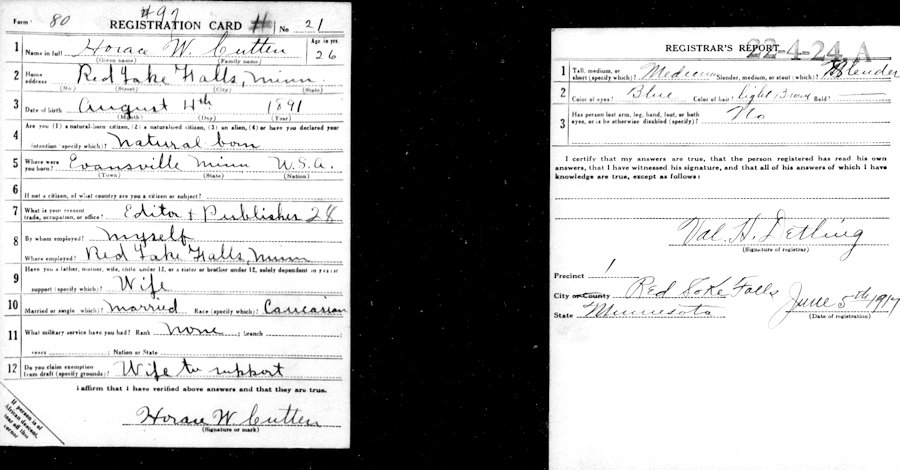 Form 80 #97 REGISTRATION CARD # No 21
1 Name in full Horace W. Cutten Age in yrs. 26
(Given name) (Family name)
2 Home address Red Lake Falls, Minn.
(No) (Street) (City) (State)
3 Date of birth August 4th 1891
(Month) (Day) (Year)
4 Are you (1) a natural-born citizen, (2) a naturalized citizen, (3) an alien, (4) or have you declared your
intention (specify which)? Natural born
5 Where were you born? Evansville Minn U.S.A.
(Town) (State) (Nation)
6 If not a citizen, of what country are you a citizen or subject?
7 What is your present trade, occupation, or office? Editor & Publisher 28
8 By whom employed? Myself
Where employed? Red Lake Falls, Minn
9 Have you a father, mother, wife, child under 12, or a sister or brother under 12, solely dependent on you for
support (specify which)? Wife
10 Married or single (which)? Married Race (specify which)? Caucasian
11 What military service have you had? Rank None ; branch
years ; Nation or State
12 Do you claim exemption from draft (specify grounds)? Wife to support
I affirm that I have verified above answers and that they are true.
Horace W. Cutten
(Signature or mark)
If person is of
African descent,
tear off this
corner
REGISTRAR'S REPORT 22-4-24 A
1 Tall, medium, or short (specify which)? Medium Slender, medium, or stout (which)? Slender
2 Color of eyes? Blue Color of hair? Light Brown Bald?
3 Has person lost arm, leg, hand, foot, or both eyes, or is he otherwise disabled (specify)? No
I certify that my answers are true, that the person registered has read his own
answers, that I have witnessed his signature, and that all of his answers of which I have
knowledge are true, except as follows:
Val. H. Detling
(Signature of registrar)
Precinct 1
City or County Red Lake Falls
State Minnesota June 5th 1917
(Date of registration)